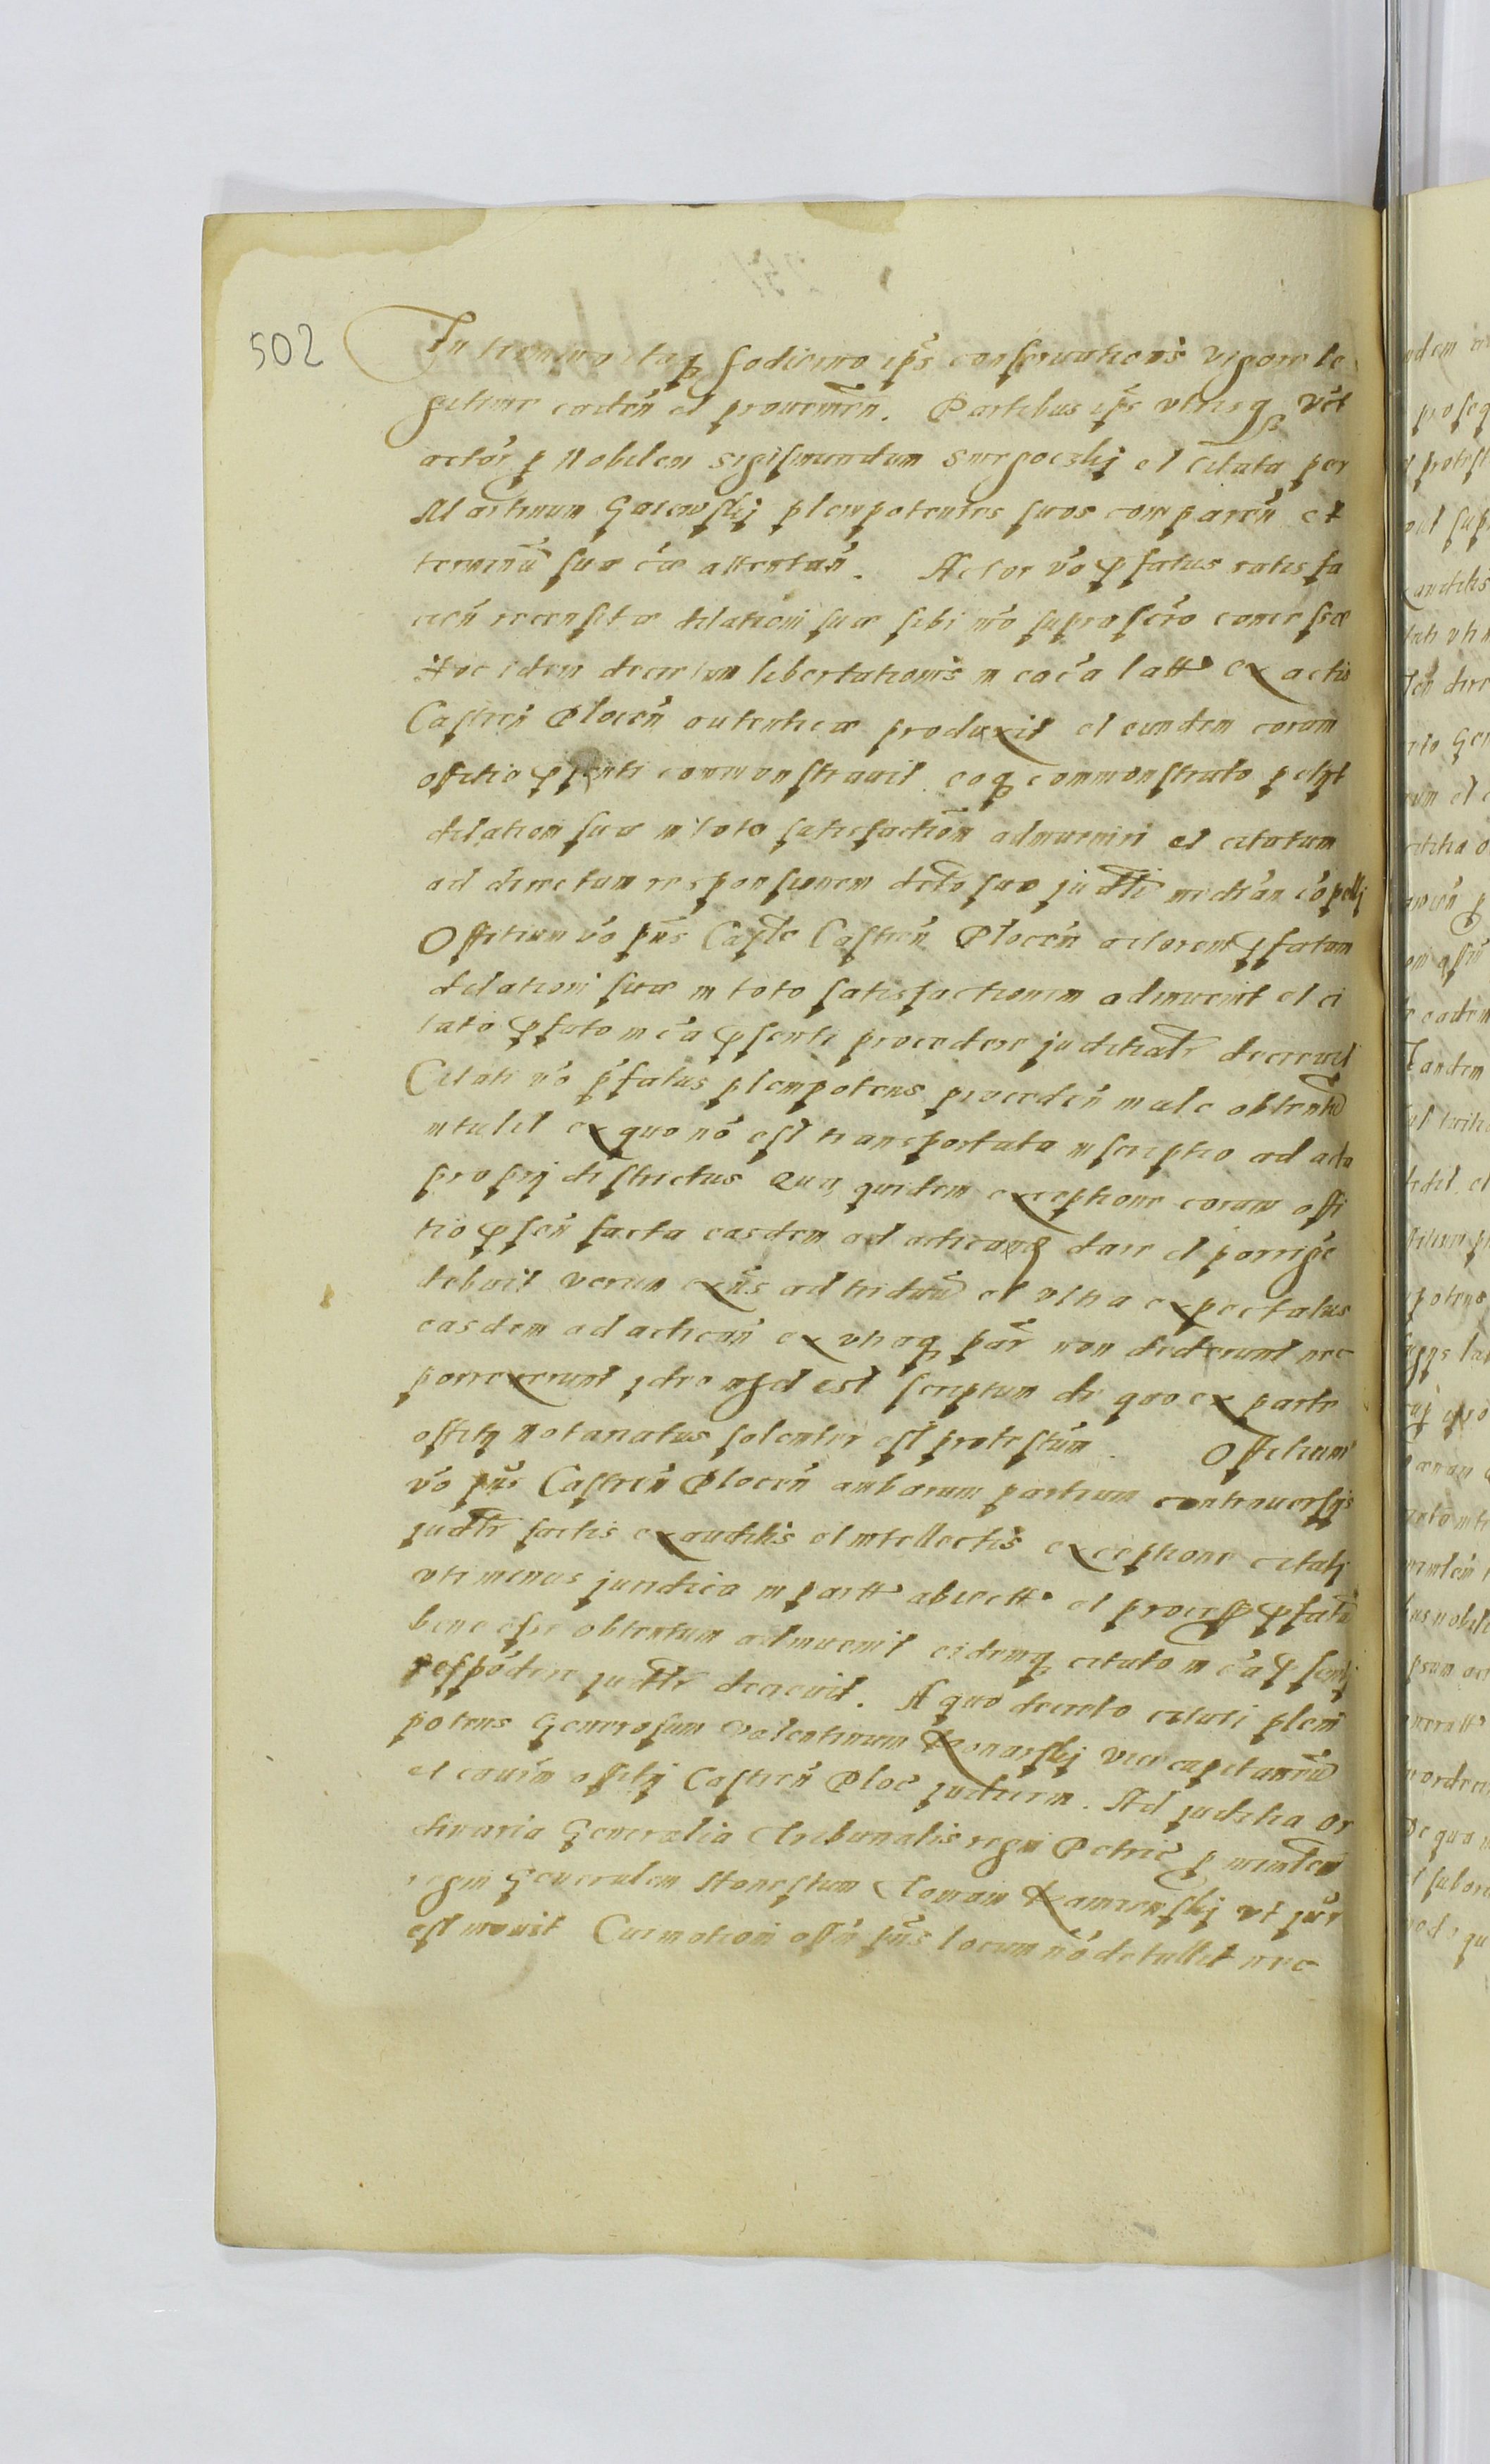 502
In termino itaq hodierno ipš conservationis vigore le
gitime caden̄ et provenien̄. Partibus ipš utrisq vēt
actor p Nobilem Sigismundum et Citata per
Martinum Gacowskij plenipotentes suos comparen̄ et
terminū suo cā attentan̄. Actor v̄o pfatus satisfa
cien̄ recensitæ dilationi suæ sibi concessæ
Hoc idem decretum libertationis in cac̄a latt ex actis
Castren̄ Plocen̄ autenticæ produxit et eundem coram
offitio psenti commonstravit eoq commonstrato petijt
dilationi suæ in toto satisfactiōm adinveniri et citatum
ad directam responsionem
Offitium v̄o pn̄s Castren̄ Plocen̄ actorem pfatum
dilationi suæ in toto satisfactionem adinvenit et ci
tato pfato in cā psenti procedere juditialr̄ decrevit
Citati v̄o pfatus plenipotens proceden̄ male obtentū
intulit ex quo nō est transportata inscriptio ad acta
proprij districtus Qua quidem exceptione coram offi
tio psen̄ facta easdem ad acticand dare et porrigē
debuit verum ad triduū et ultra expectatus
easdem ad actican̄ ex utraq par̄ non dederunt nec
porrexerunt ideo est scriptum de quo ex parte
offitij notariatus solenter est protestūm. Offitium
v̄o pn̄s Castren̄ Plocen̄ ambarum partium controversijs
judtlr̄ factis exauditis et intellectis exceptione citati
uti minus juridica in partt abiectt et process pfatū
bene esse obtentum adinvenit eidemq citato in cā psenti
respōdere judtlr̄ decrevit. A quo decreto citati pleni
potens Generosum Valentinum vice capitaneū
et eoium offitij Castren̄ Ploc̄ judicem. Ad juditia or
dinaria Generalia Tribunalis regni Petric̄ p
regni Generalem Honestum ut jur̄
est movit Cui motioni offin̄ pn̄s locum nō detullit nec